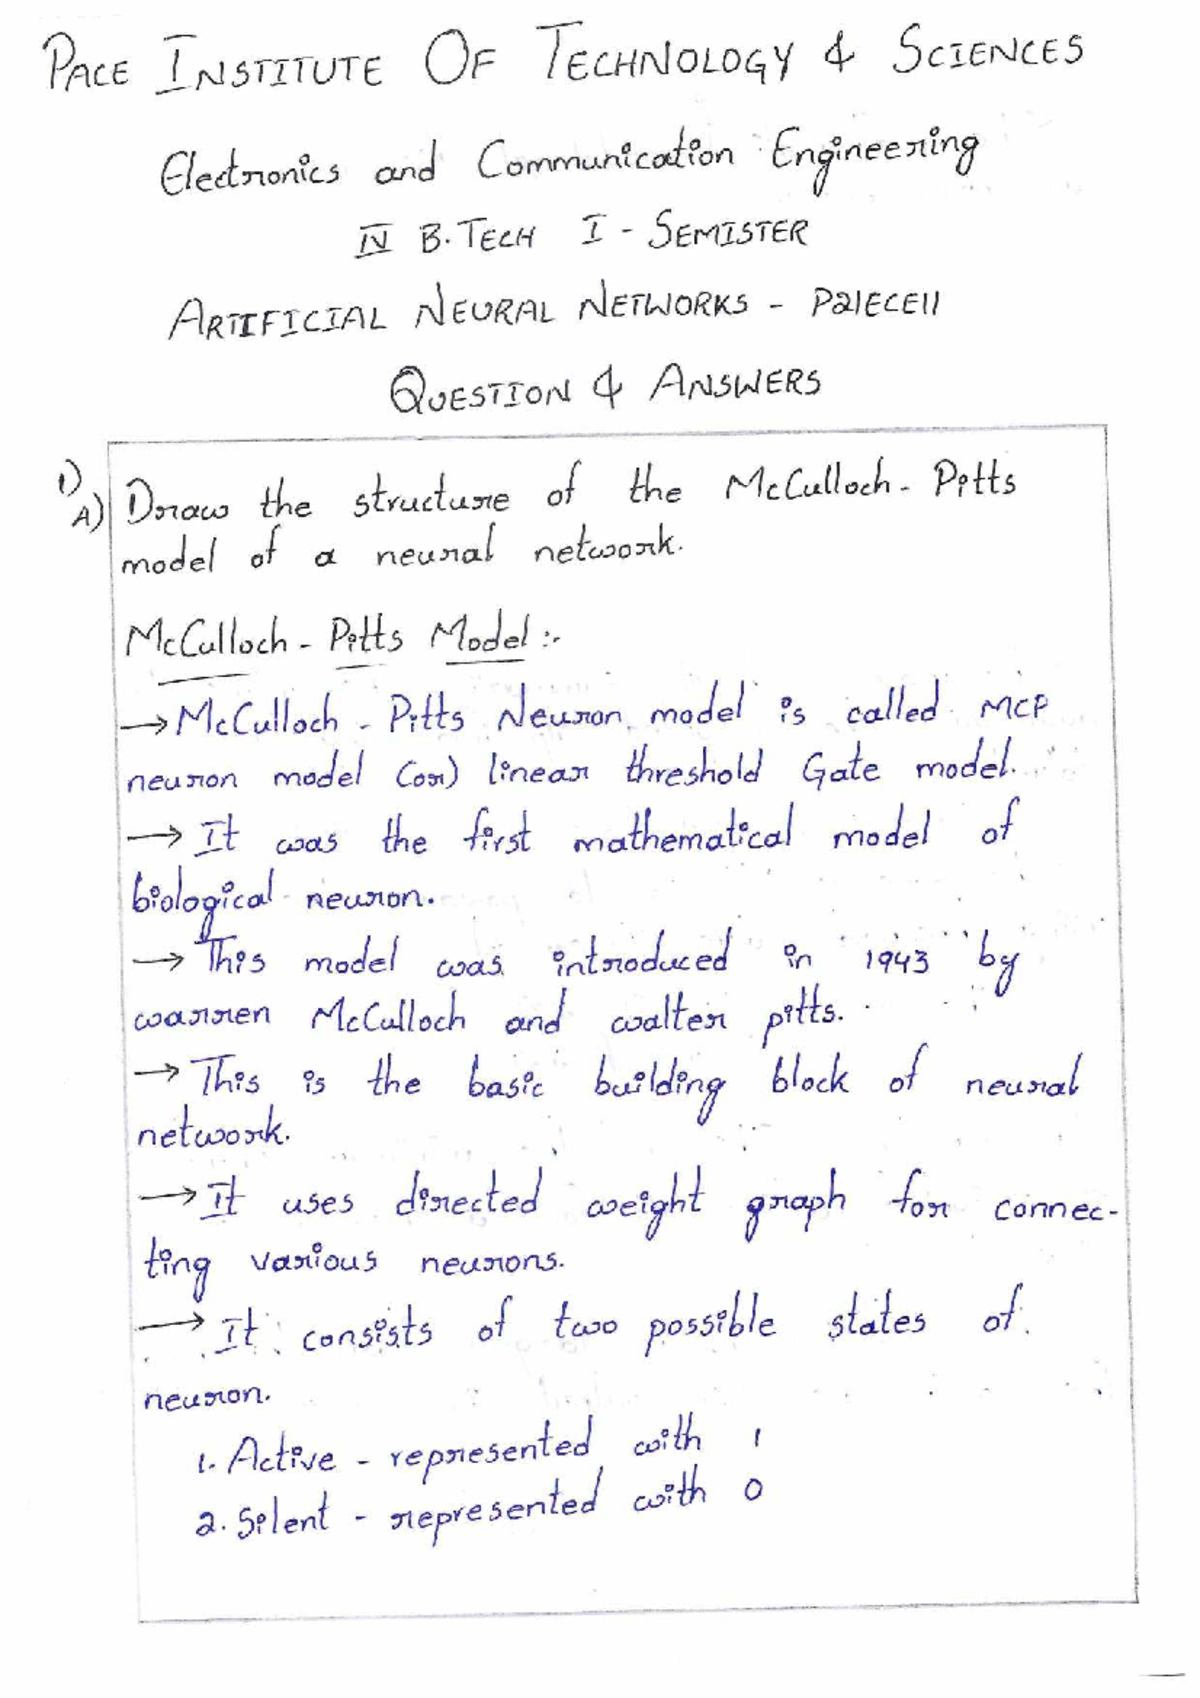 PACE INSTITUTE OF TECHNOLOGY & SCIENCES
Electronics and Communication Engineering
IV B.TECH I - SEMISTER
ARTIFICIAL NEURAL NETWORKS - P21ECE11
QUESTION & ANSWERS
1)
A) Draw the structure of the McCulloch - Pitts
model of a neural network.
McCulloch - Pitts Model :-
→ McCulloch - Pitts Neuron model is called MCP
neuron model (or) linear threshold Gate model.
→ It was the first mathematical model of
biological neuron.
→ This model was introduced in 1943 by
warren McCulloch and walter pitts.
→ This is the basic building block of neural
network.
→ It uses directed weight graph for connec-
ting various neurons.
→ It consists of two possible states of
neuron.
1. Active - represented with 1
2. Silent - represented with 0